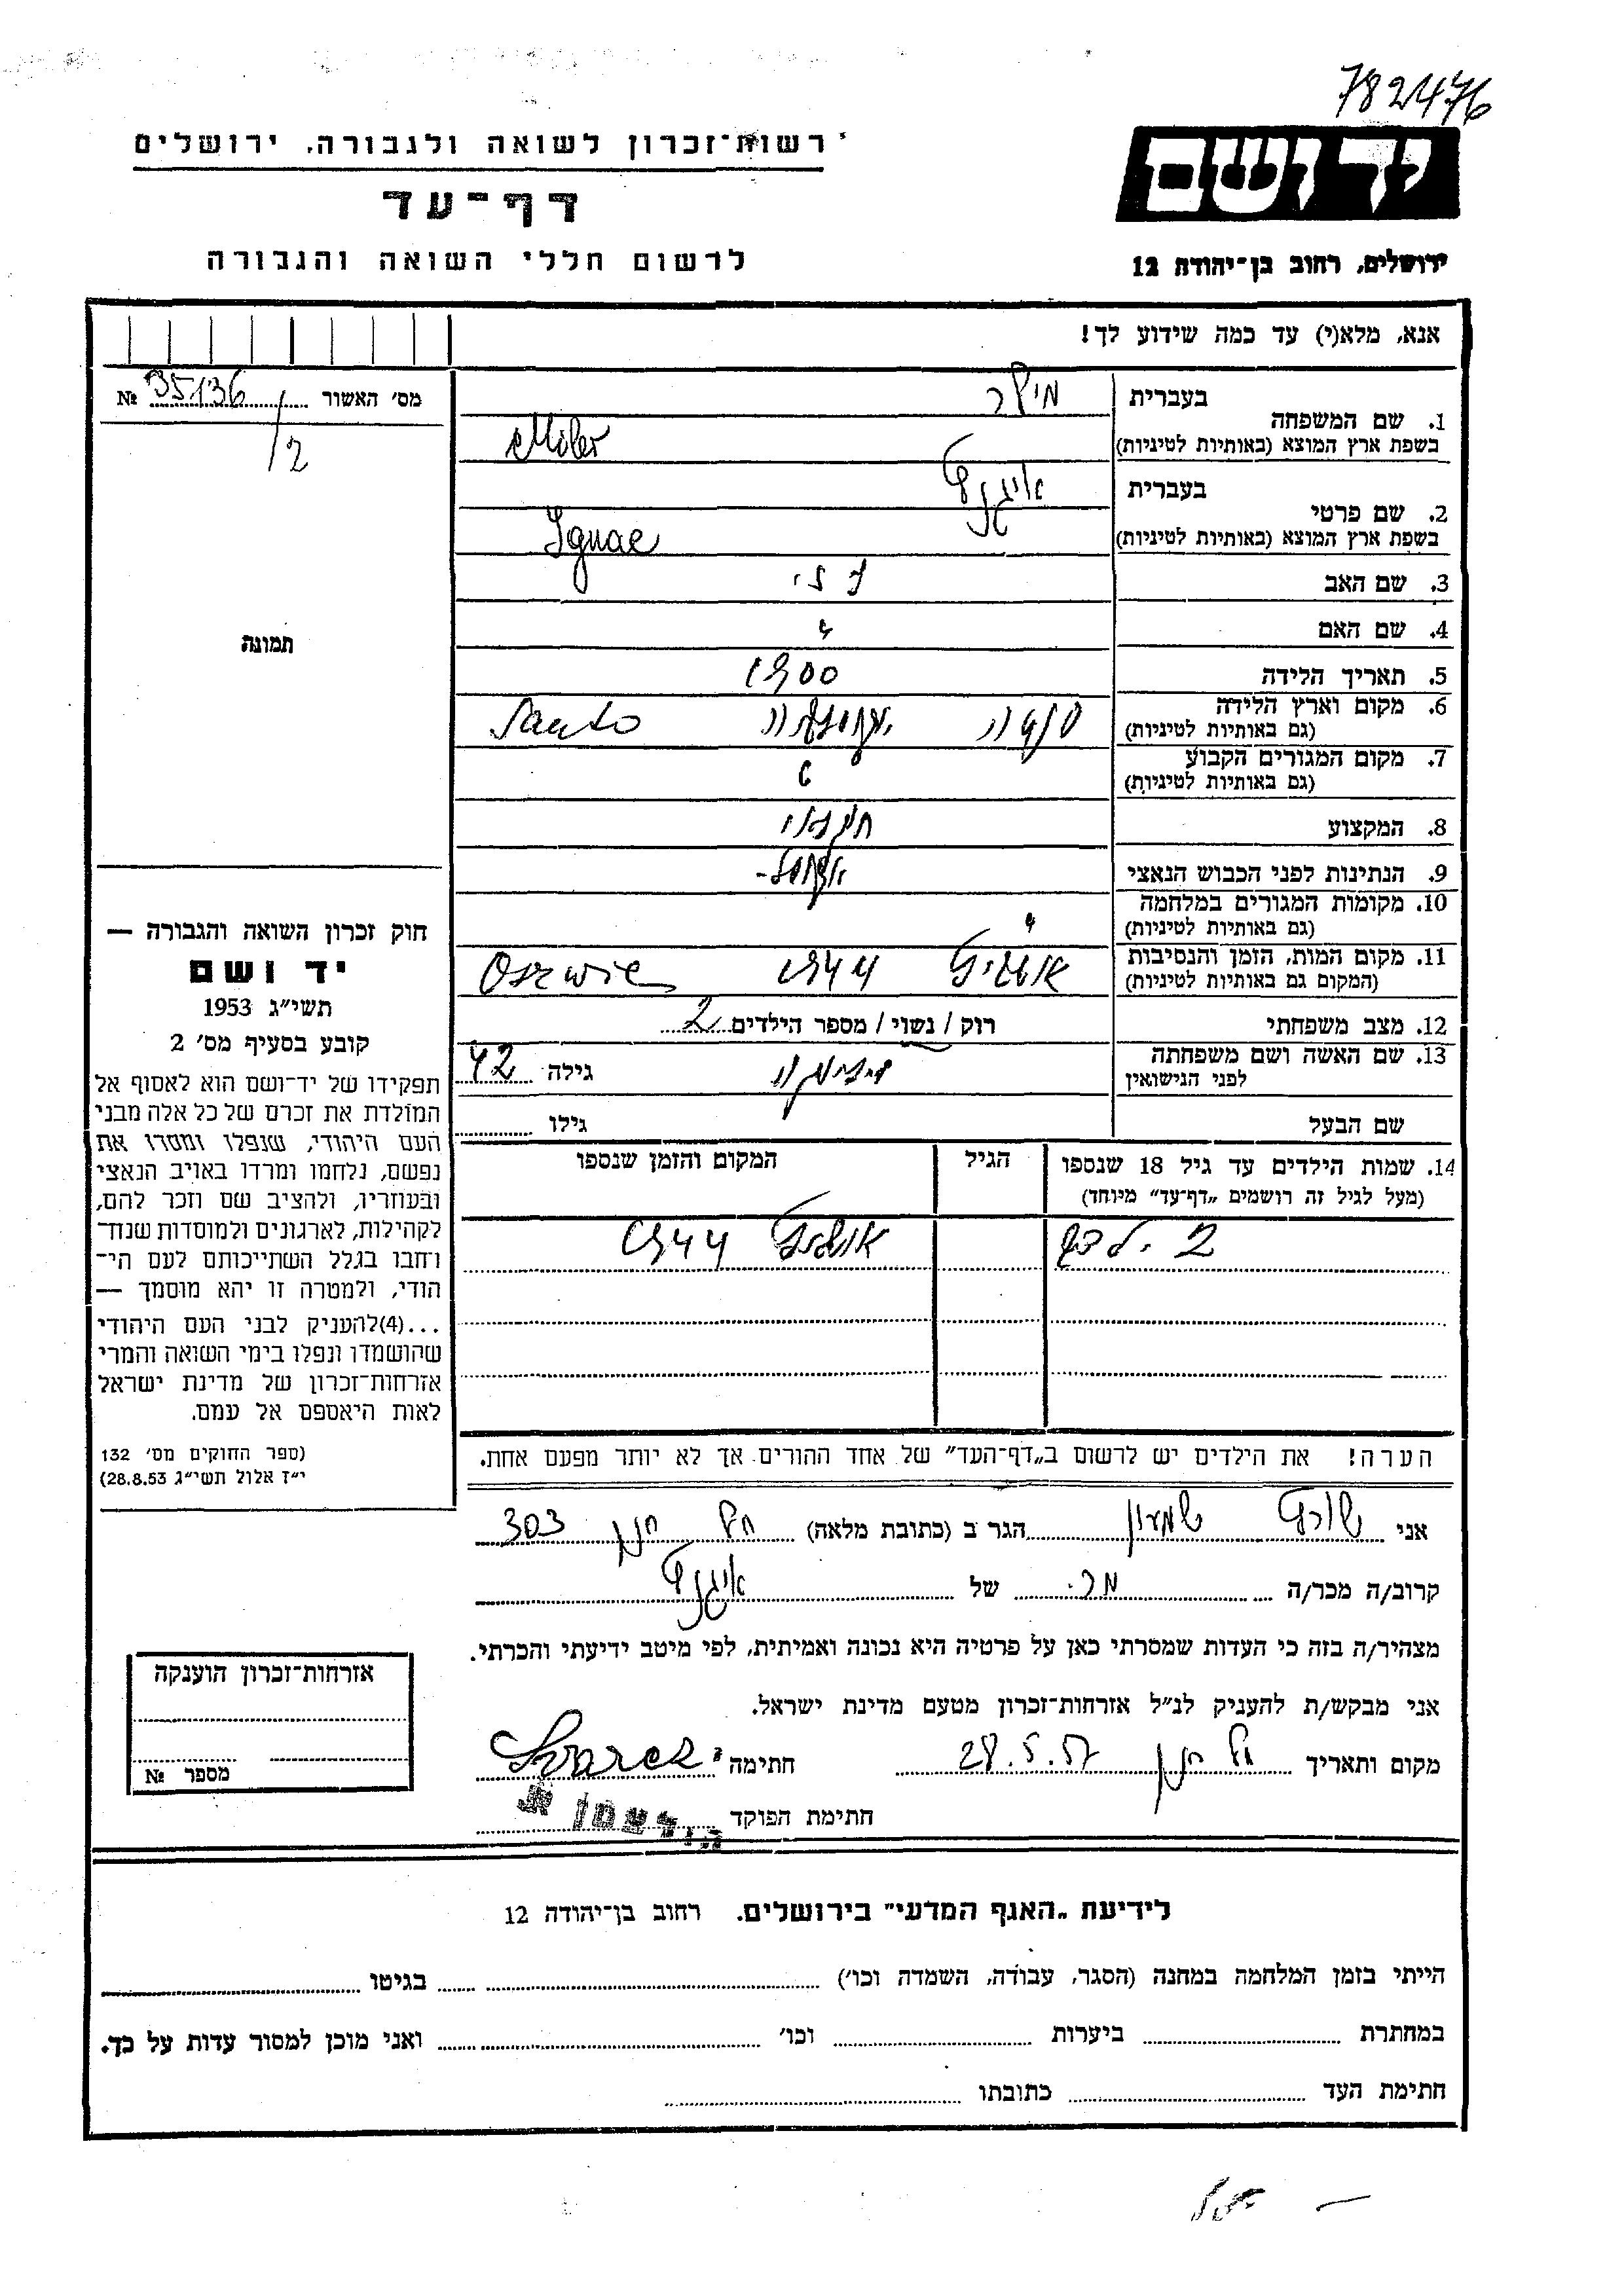 782476
רשות־זכרון לשואה ולגבורה, ירושלים
יד ושם
דף־עד
לרשום חללי השואה והגבורה
ירושלים, רחוב בן־יהודה 12
אנא, מלא(י) עד כמה שידוע לך!
מס׳ האשור № 35136
/2
1. שם המשפחה
בעברית מילר
בשפת ארץ המוצא (באותיות לטיניות) Miler
2. שם פרטי
בעברית איגנץ
בשפת ארץ המוצא (באותיות לטיניות) Ignac
3. שם האב
4. שם האם
תמונה
5. תאריך הלידה 1900
6. מקום וארץ הלידה
(גם באותיות לטיניות) Santo
7. מקום המגורים הקבוע
(גם באותיות לטיניות)
8. המקצוע
9. הנתינות לפני הכבוש הנאצי
10. מקומות המגורים במלחמה
(גם באותיות לטיניות)
11. מקום המות, הזמן והנסיבות
(המקום גם באותיות לטיניות) 1944
12. מצב משפחתי רוק / נשוי / מספר הילדים 2
13. שם האשה ושם משפחתה
לפני הנישואין גילה 42
שם הבעל גילו
14. שמות הילדים עד גיל 18 שנספו
(מעל לגיל זה רושמים „דף־עד” מיוחד)
הגיל
המקום והזמן שנספו
2 ילדים 1944
הערה! את הילדים יש לרשום ב„דף־העד” של אחד ההורים אך לא יותר מפעם אחת.
חוק זכרון השואה והגבורה —
יד ושם
תשי״ג 1953
קובע בסעיף מס׳ 2
תפקידו של יד־ושם הוא לאסוף אל
המולדת את זכרם של כל אלה מבני
העם היהודי, שנפלו ומסרו את
נפשם, נלחמו ומרדו באויב הנאצי
ובעוזריו, ולהציב שם וזכר להם,
לקהילות, לארגונים ולמוסדות שנח־
רחבו בגלל השתייכותם לעם הי־
הודי, ולמטרה זו יהא מוסמך —
...(4)להעניק לבני העם היהודי
שהושמדו ונפלו בימי השואה והמרי
אזרחות־זכרון של מדינת ישראל
לאות היאספם אל עמם.
(ספר החוקים מס׳ 132
י״ז אלול תשי״ג 28.8.53)
אני שורץ שמעון הגר ב (כתובת מלאה) תל חנן 303
קרוב/ה מכר/ה מכר של איגנץ
מצהיר/ה בזה כי העדות שמסרתי כאן על פרטיה היא נכונה ואמיתית, לפי מיטב ידיעתי והכרתי.
אני מבקש/ת להעניק לנ״ל אזרחות־זכרון מטעם מדינת ישראל.
מקום ותאריך תל חנן 28.5.57 חתימה
חתימת הפוקד
אזרחות־זכרון הוענקה
מספר №
לידיעת „האגף המדעי” בירושלים. רחוב בן־יהודה 12
הייתי בזמן המלחמה במחנה (הסגר, עבודה, השמדה וכו׳) בגיטו
במחתרת ביערות וכו׳ ואני מוכן למסור עדות על כך.
חתימת העד כתובתו